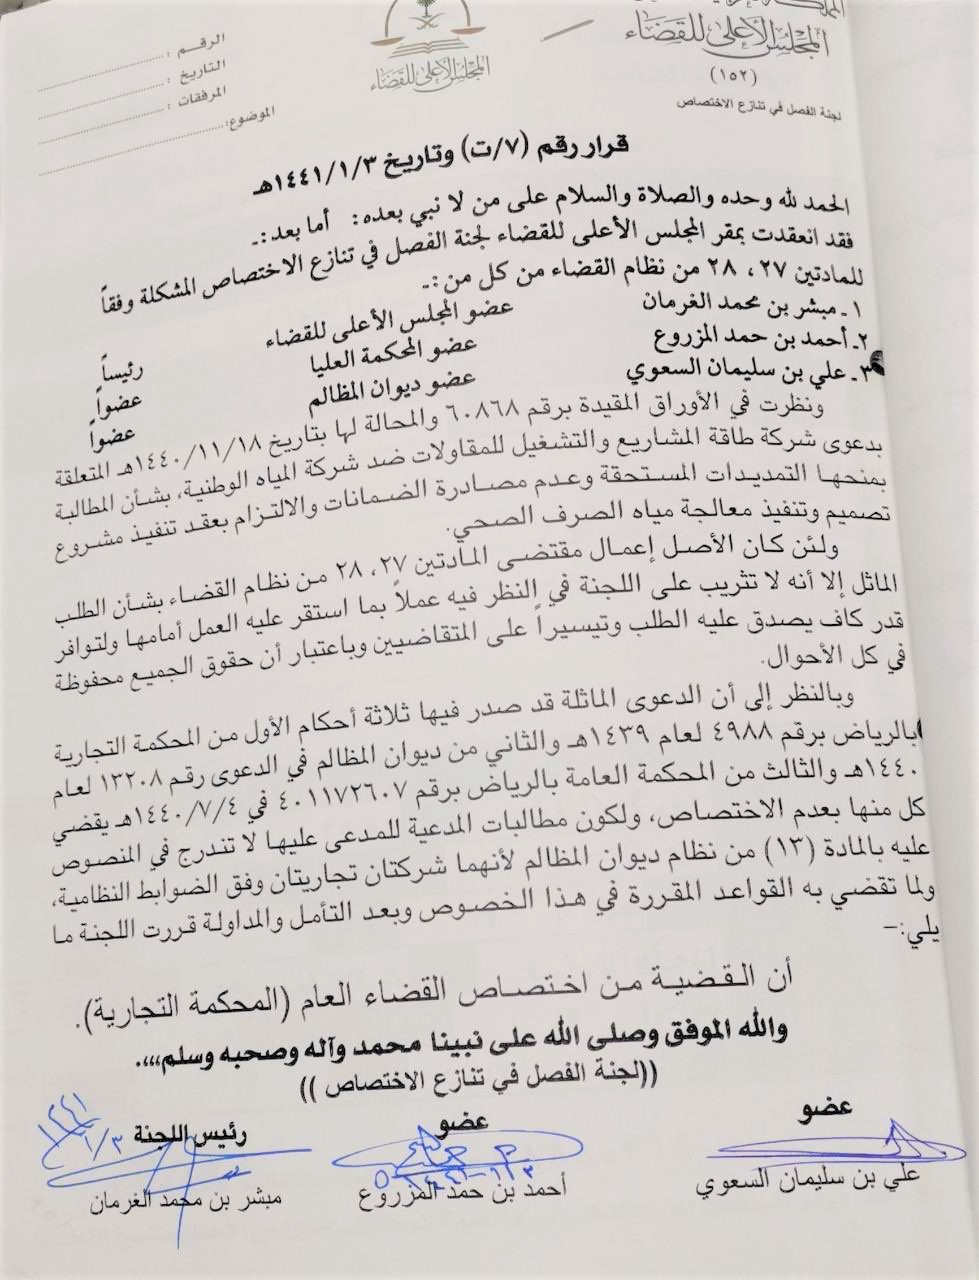 المجلس الأعلى للقضاء
(١٥٢)
لجنة الفصل في تنازع الاختصاص
المجلس الأعلى للقضاء
الرقم :
التاريخ :
المرفقات :
الموضوع:
قرار رقم (٧/ت) وتاريخ ١٤٤١/١/٣هـ
الحمد لله وحده والصلاة والسلام على من لا نبي بعده: أما بعد:ـ
فقد انعقدت بمقر المجلس الأعلى للقضاء لجنة الفصل في تنازع الاختصاص المشكلة وفقاً
للمادتين ٢٧ ، ٢٨ من نظام القضاء من كل من:ـ
١ـ مبشر بن محمد الغرمان عضو المجلس الأعلى للقضاء رئيساً
٢ـ أحمد بن حمد المزروع عضو المحكمة العليا عضواً
٣ـ علي بن سليمان السعوي عضو ديوان المظالم عضواً
ونظرت في الأوراق المقيدة برقم ٦٠٨٦٨ والمحالة لها بتاريخ ١٤٤٠/١١/١٨هـ المتعلقة
بدعوى شركة طاقة المشاريع والتشغيل للمقاولات ضد شركة المياه الوطنية، بشأن المطالبة
بمنحها التمديدات المستحقة وعدم مصادرة الضمانات والالتزام بعقد تنفيذ مشروع
تصميم وتنفيذ معالجة مياه الصرف الصحي.
ولئن كان الأصل إعمال مقتضى المادتين ٢٧، ٢٨ من نظام القضاء بشأن الطلب
الماثل إلا أنه لا تثريب على اللجنة في النظر فيه عملاً بما استقر عليه العمل أمامها ولتوافر
قدر كاف يصدق عليه الطلب وتيسيراً على المتقاضيين وباعتبار أن حقوق الجميع محفوظة
في كل الأحوال.
وبالنظر إلى أن الدعوى الماثلة قد صدر فيها ثلاثة أحكام الأول من المحكمة التجارية
بالرياض برقم ٤٩٨٨ لعام ١٤٣٩هـ والثاني من ديوان المظالم في الدعوى رقم ١٣٢٠٨ لعام
١٤٤٠هـ والثالث من المحكمة العامة بالرياض برقم ٤٠١١٧٢٦٠٧ في ١٤٤٠/٧/٤هـ يقضي
كل منها بعدم الاختصاص، ولكون مطالبات المدعية للمدعى عليها لا تندرج في المنصوص
عليه بالمادة (١٣) من نظام ديوان المظالم لأنهما شركتان تجاريتان وفق الضوابط النظامية،
ولما تقضي به القواعد المقررة في هذا الخصوص وبعد التأمل والمداولة قررت اللجنة ما
يلي:-
أن القضية من اختصاص القضاء العام (المحكمة التجارية).
والله الموفق وصلى الله على نبينا محمد وآله وصحبه وسلم،،،،
((لجنة الفصل في تنازع الاختصاص ))
عضو عضو رئيس اللجنة
١٤٤١/١/٣
علي بن سليمان السعوي أحمد بن حمد المزروع مبشر بن محمد الغرمان